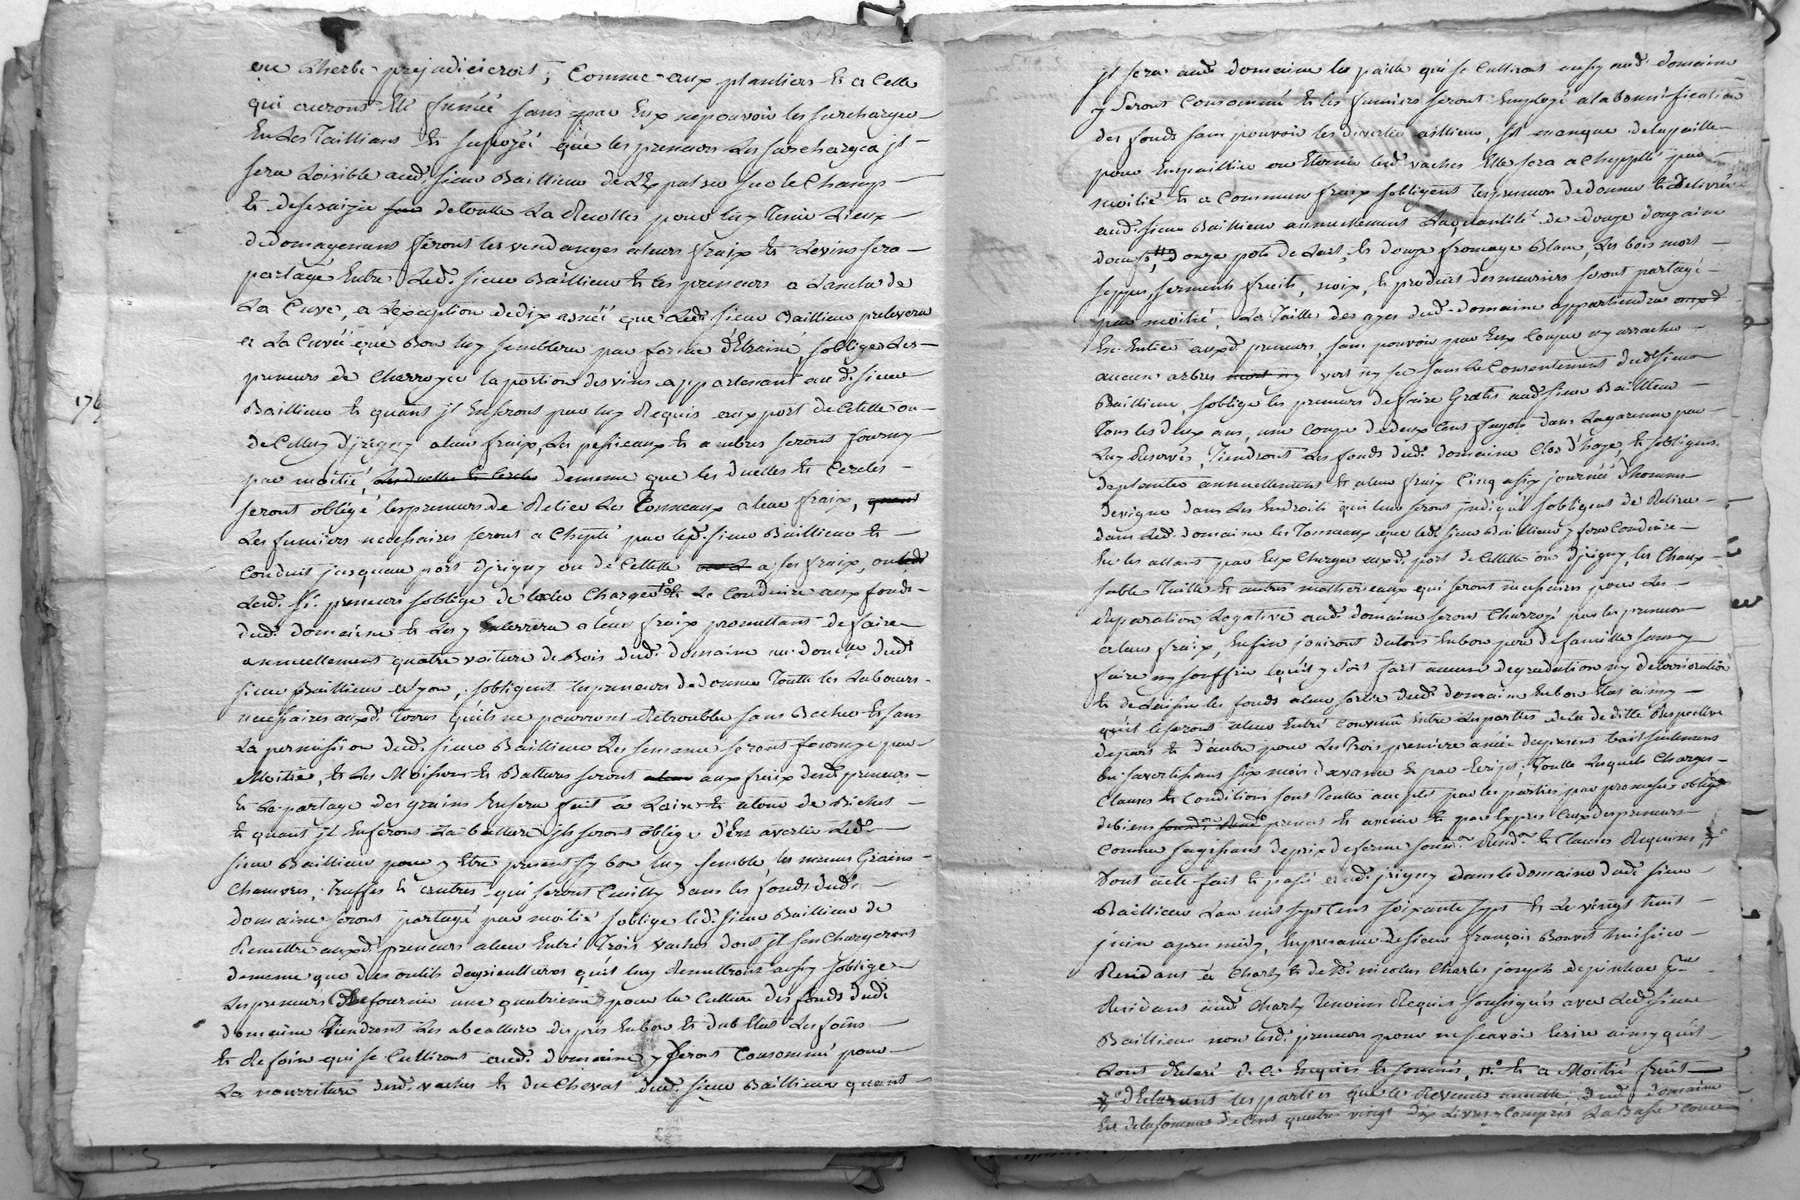 ou Cherbe prejudicieroit, Comme aux plantiers & a Celle
qui auront été fumée sans par Eux ne pouvoir les surcharger
En les Taillians & suposé que les preneurs les surchargea jl
sera Loisible aud. sieur Baillieur de sur le Champ
& de de toutte La Recolte pour luy Tenir Lieux
dedomagement feront les vendanges a leurs fraix & Le vin sera
partagé Entre Led. sieur Baillieur & les preneurs a L'anche de
La Cuve, a L'exeption de dix anneé que Led. sieur Baillieur prelevera
a La Cuveé que Bon luy semblera par forme d'Etraine, sobliges Les
preneurs de Charroyer la portion des vins appartenant aud. sieur
Baillieur & quant jl Enseront par luy Requis aux port de Celette ou
de d'jrigny a leur fraix, Les pesseaux & autres seront fourny
par moitié, Les duelles & Cercles demême que les duelles & Cercles
seront obligé les preneurs de Relier Les Tonneaux a leur fraix,
Les fumiers necessaires seront acheptés par led. sieur Baillieur &
Conduit jusquau port djrigny ou de Cellette a ses fraix, ou
Lesd. preneurs soblige de Charger & Le Conduire aux fonds
dud. domaine & Les y Enterrera a leur fraix promettant de faire
annuellement quatre voiture de Bois dud. domaine au domicile dud.
sieur Baillieur a Lyon, sobligent les preneurs de donner Toutte les Labours
necessaires auxd. Terres quils ne pourront Retroubler sans & sans
La permission dud. sieur Baillieur Les semance seront fournye par
Moitié, & Les Moissons & Batture seront aux fraix desd. preneurs
& Le partage des grains Ensera fait a Laire & a Leur de Bichet
& quant jl Enseront La batture jls seront oblige d'En avertir Led.
sieur Baillieur pour y Etre present sy bon luy semble, les menus Grains
Chanvres, Truffes & autres qui seront Cuilly dans les fonds dud.
domaine seront partagé par moitié soblige led. sieur Baillieur de
Remettre auxd. preneurs a leur Entré Trois vaches dont jl sen Chargeront
demême que des outils dagricultures quil luy Remettront aussy soblige
Les preneurs de fournir une quatrieme pour la Culture des fonds dud.
domaine Tiendront Les abeallere des prés En bon & dub Etat Les foins
& Refoin qui se Cullirons aud. domaine y seront Consommé pour
La nourriture desd. vaches & du Cheval dud. sieur Baillieur quant
176
jl sera aud. domaine les paille qui se Cullirons aussy aud. domaine
y seront Consommé & les fumiers seront Employé a la bonnification
des fonds sans pouvoir les divertir aillieur, s'il manque de la paille
pour Enpaillier ou Eternir lesd. vaches Elle sera acheptté par
moitié & a Commun fraix sobligent les preneurs de donner & delivrer
aud. sieur Baillieur annuellement La quantité de douze douzaine
doeufs, douze pots de Lait, & douze fromage Blanc, Les bois mort
seppes, serments fruits, noix, & produit des muriers seront partagé
par moitié, La Taille des ayes dud. domaine appartiendra
En Entier auxd. preneurs, sans pouvoir par Eux Couper ny arracher
aucun arbres vert ny sec sans Le Consentement dud. sieur
Baillieur, soblige les preneurs de faire Gratis aud. sieur Baillieur
Tous les deux ans, une Coupe de deux Cens fagots dans La garenne par
Luy Reservé, Tiendront Les fonds dud. domaine Clos d'haye, & sobligent
deplanter annuellement & a leur fraix Cinq a six journeé d'hommes
de vigne dans Les Endroits qui leur seront jndiqué sobligent de Relier
dans Led. domaine les Tonneaux que led. sieur Baillieur y fera Conduire
En les allant par Eux Charger auxd. port de Cellette ou djrigny, les Chaux
sable Tuille & autres matheriaux qui seront necessaires pour Les
Reparation Logative aud. domaine seron Charroyé par les preneurs
a leur fraix, Enfin jouiront du tout En bon pere de famille sans y
faire ny souffrir quil y soit fait aucune degradation ny deterrioration
& de Laisser les fonds a leur sortie dud. domaine En bon Etat ainsy
quil Le seront a leur Entré Convenu Entre Les parties de la deditte Respective
de part & d'autre pour Les Trois premiere anneé du present bail seulement
En savertissans six mois davance & par Ecript; Toutte Lesquels Charges
Clauses & Conditions sont Toutte accepté par les parties par promesse oblig.
de biens present & avenir & par Exprés Ceux des preneurs
Comme sagissant de prix de ferme soum. Renon. & Clauses Requises
Dont acte fait & passé aud. jrigny dans le domaine dud. sieur
Baillieur Lan mil sept Cens soixante sept & Le vingt huit
juin apres midy, En presence de sieur françois Bouvet huissier
Residant à Charly & de Sr. nicolas Charles joseph
Residans aud. Charly Temoins Requis soussignés avec Led. sieur
Baillieur non lesd. preneurs pour ne sçavoir Ecrire ainsy quil
Lont declaré de Ce Enquis & sommés, & a Moitié fruit
declarant les parties que le Revenu annuel dud. domaine
Est de la somme de Cent quatre vingt dix Livres y Compris La Basse Cour